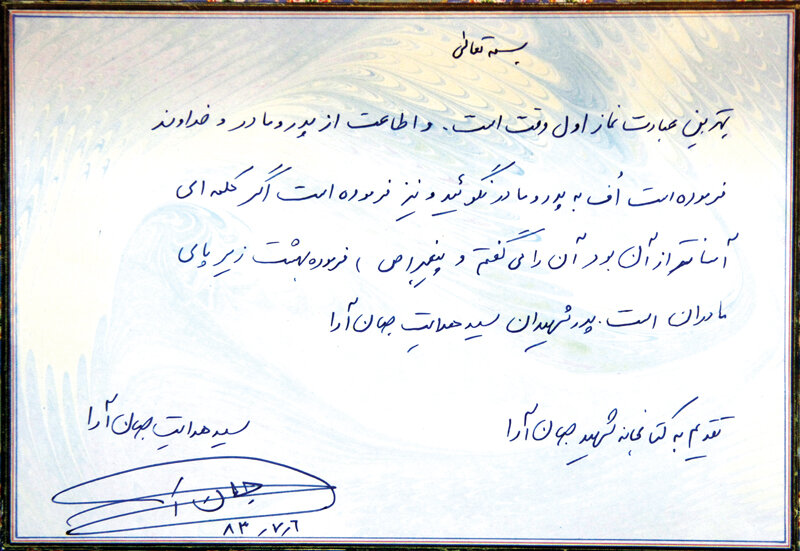 بسمه تعالی
بهترین عبادت نماز اول وقت است. و اطاعت از پدر و مادر و خداوند
فرموده است اُف به پدر و مادر نگوئید و نیز فرموده است اگر کلمه ای
آسانتر از آن بود آن را می گفتم و پیغمبر (ص) فرموده بهشت زیر پای
مادران است. پدر شهیدان سید هدایت جهان آرا
تقدیم به کتابخانه شهید جهان آرا
سید هدایت جهان آرا
جهان آرا
۸۳/۷/۶